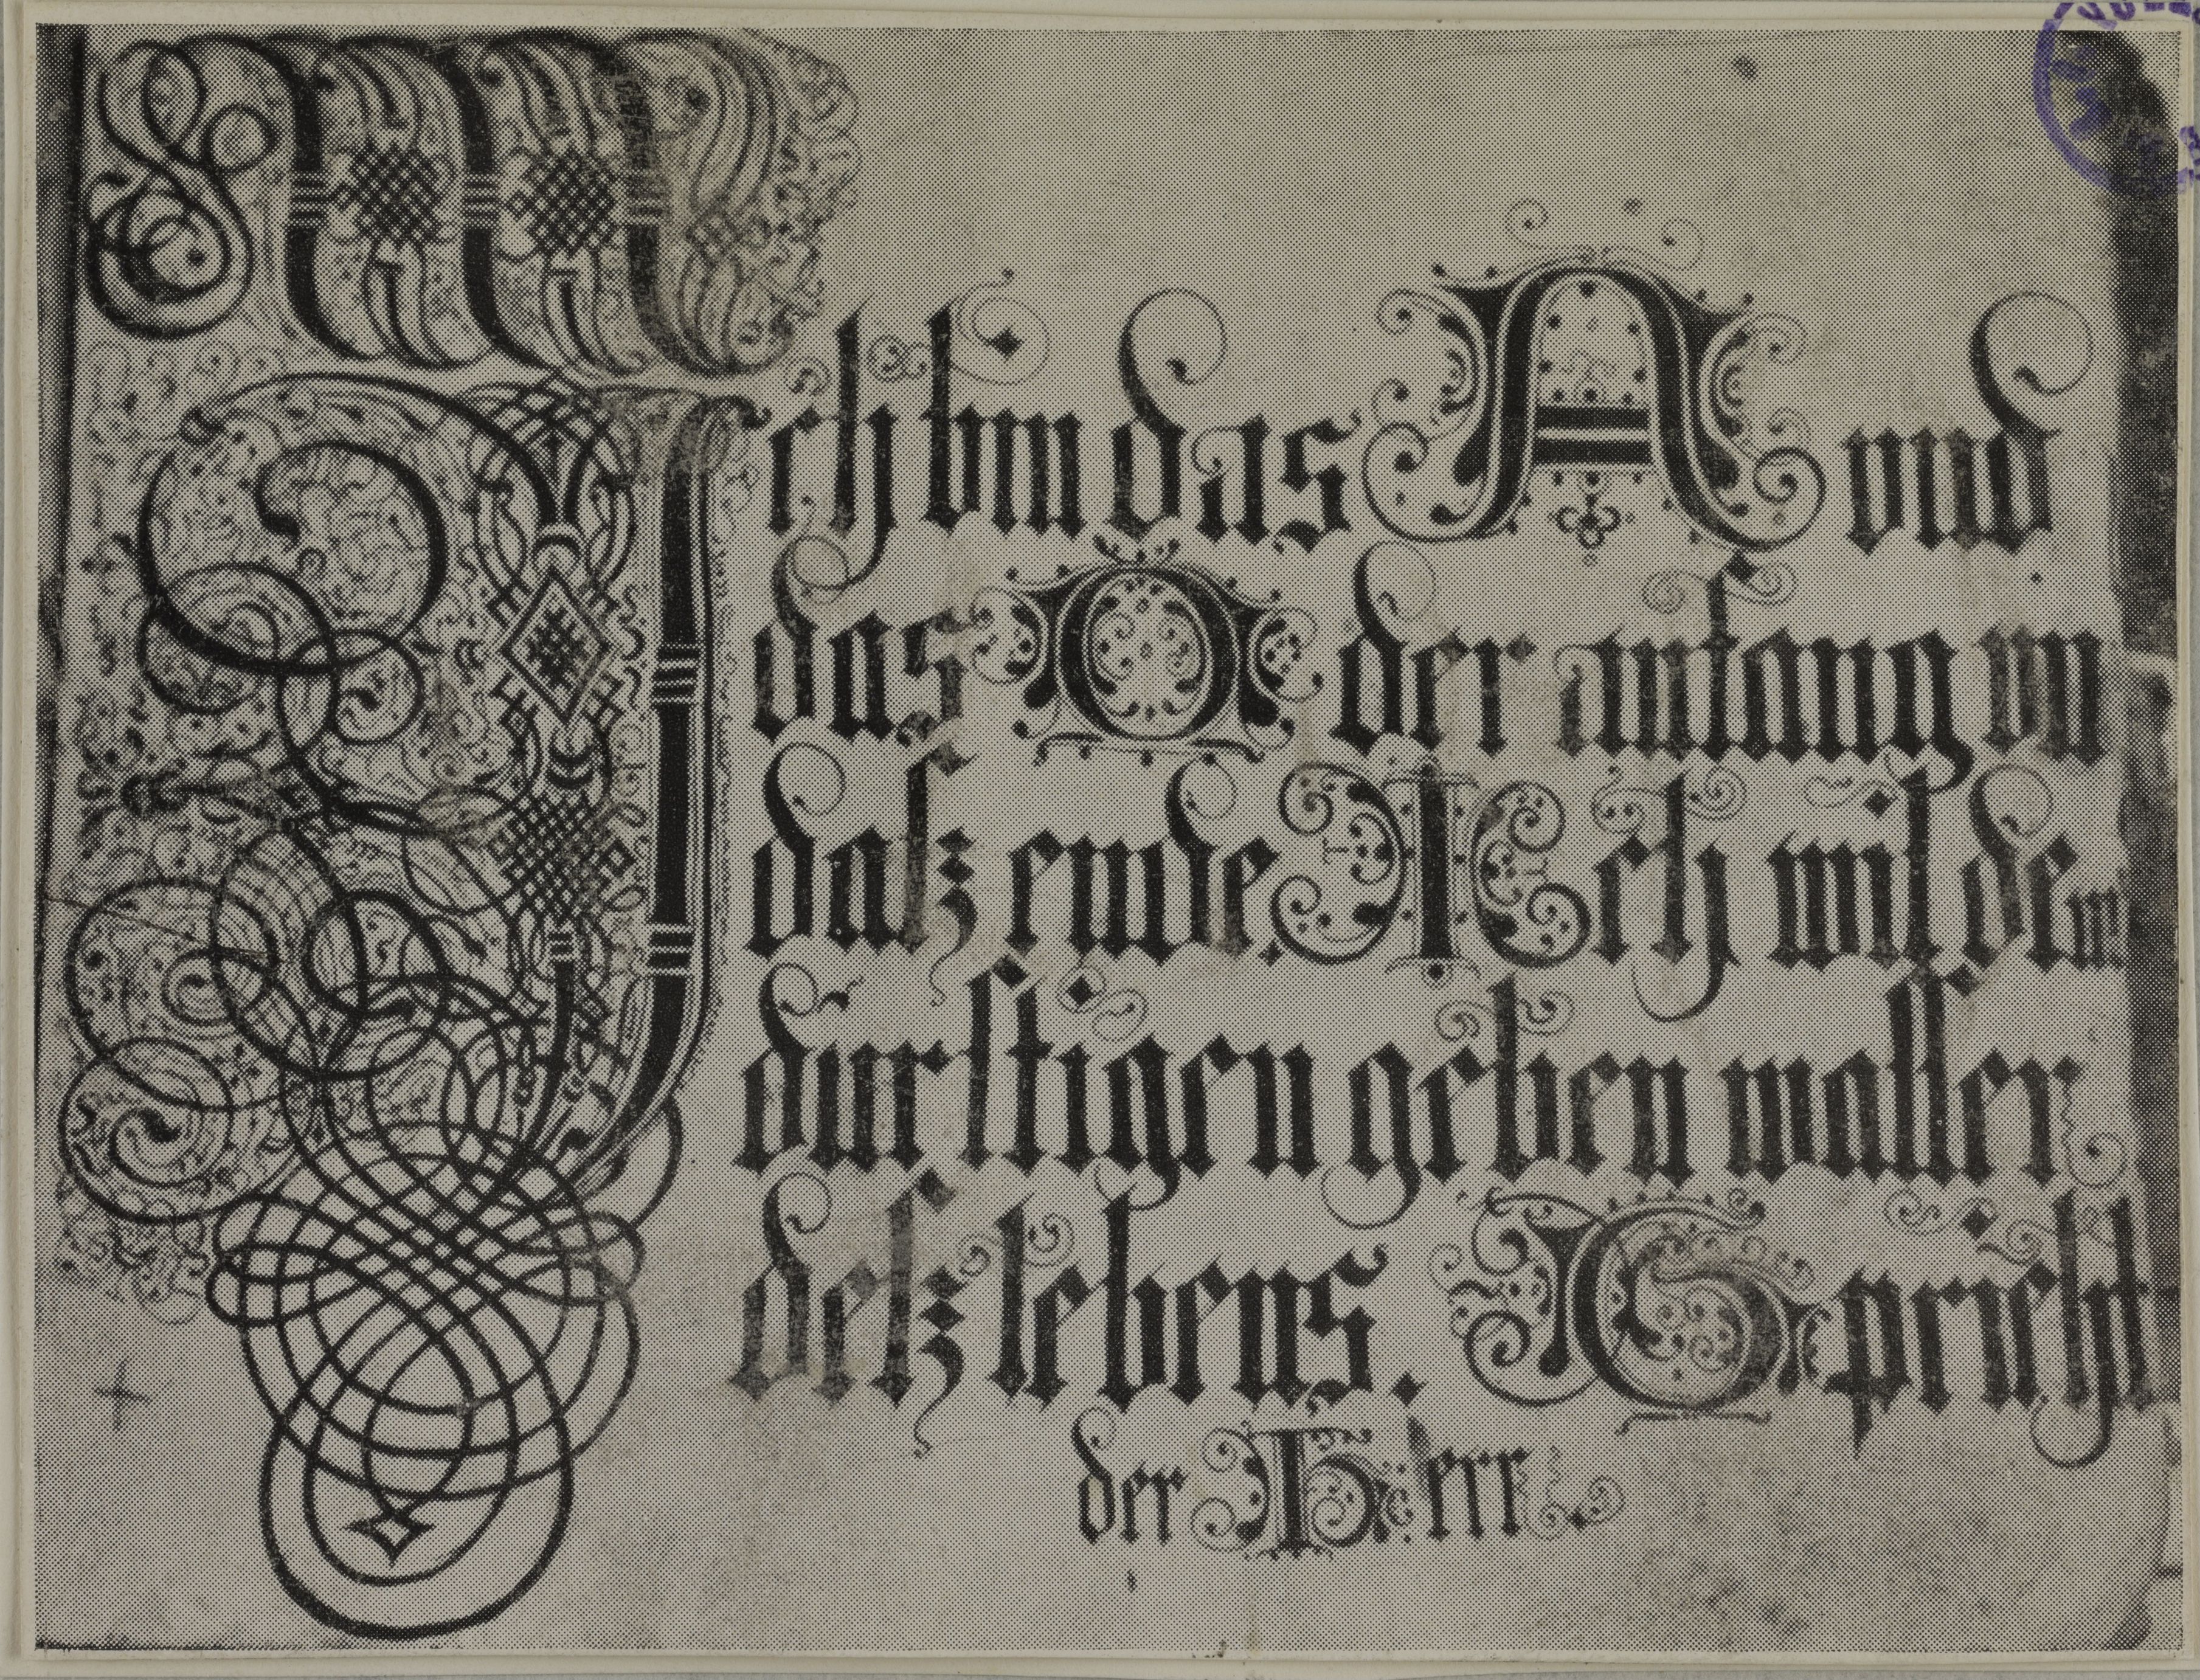 Ich bin das A vnd
das O der anfang vn
dasz ende. Ich wil dem
durstigen geben wasser
desz lebens. Spricht
der Herr.